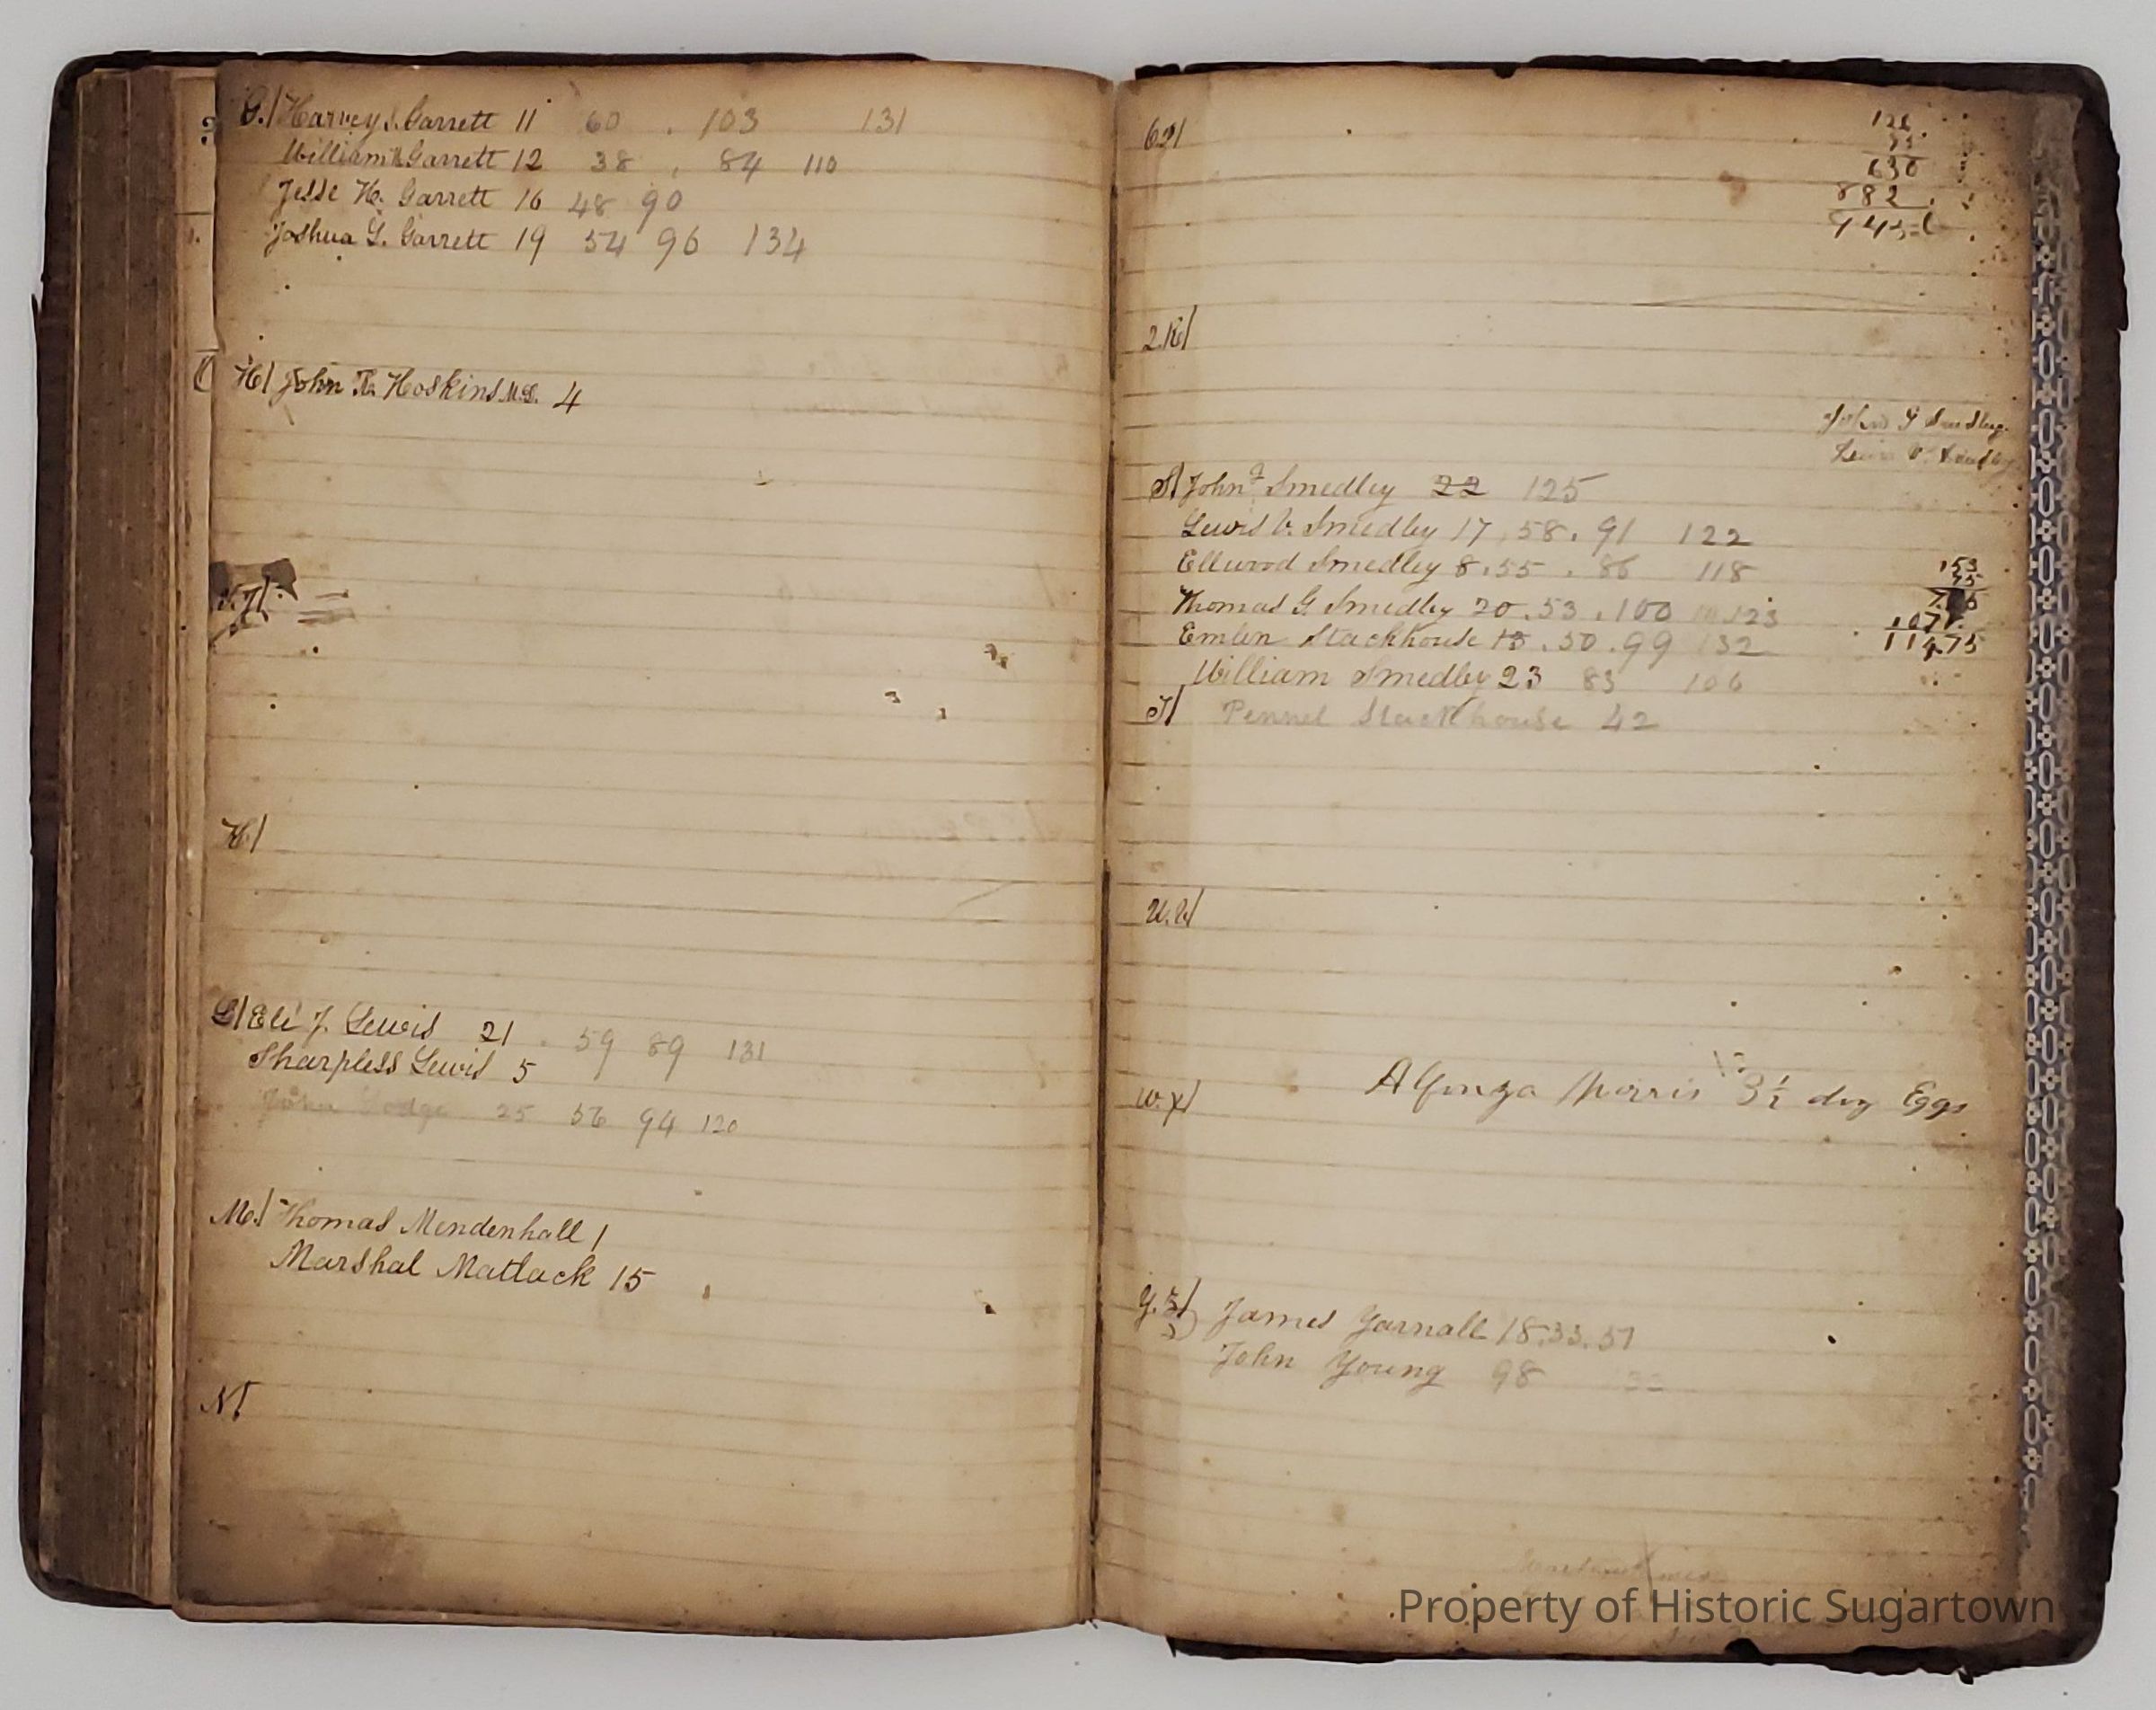 G. Harvey S. Garrett 11 60 . 103 131
William H Garrett 12 38 . 84 110
Jesse H. Garrett 16 48 90
Joshua G. Garrett 19 54 96 134
H John Hoskins M.D. 4
K.
L Eli J. Lewis 21 . 59 89 131
Sharpless Lewis 5
John Dodge 25 56 94 120
M. Thomas Mendenhall 1
Marshal Matlack 15
N
126
630
882
2.R
John G Smedley
S John G Smedley 22 125
Lewis V. Smedley 17 . 58 . 91 122
Ellwood Smedley 8 . 55 . 86 118
Thomas G. Smedley 20 . 53 . 100 123
Emlen Stackhouse 13 . 50 . 99 132
William Smedley 23 83 106
T Pennel Stackhouse 42
153
75
114.75
U.V
W.X Alfonza Morris 3½ doz Eggs
Y.Z James Yarnall 18 . 33 . 51
John Young 98
Property of Historic Sugartown